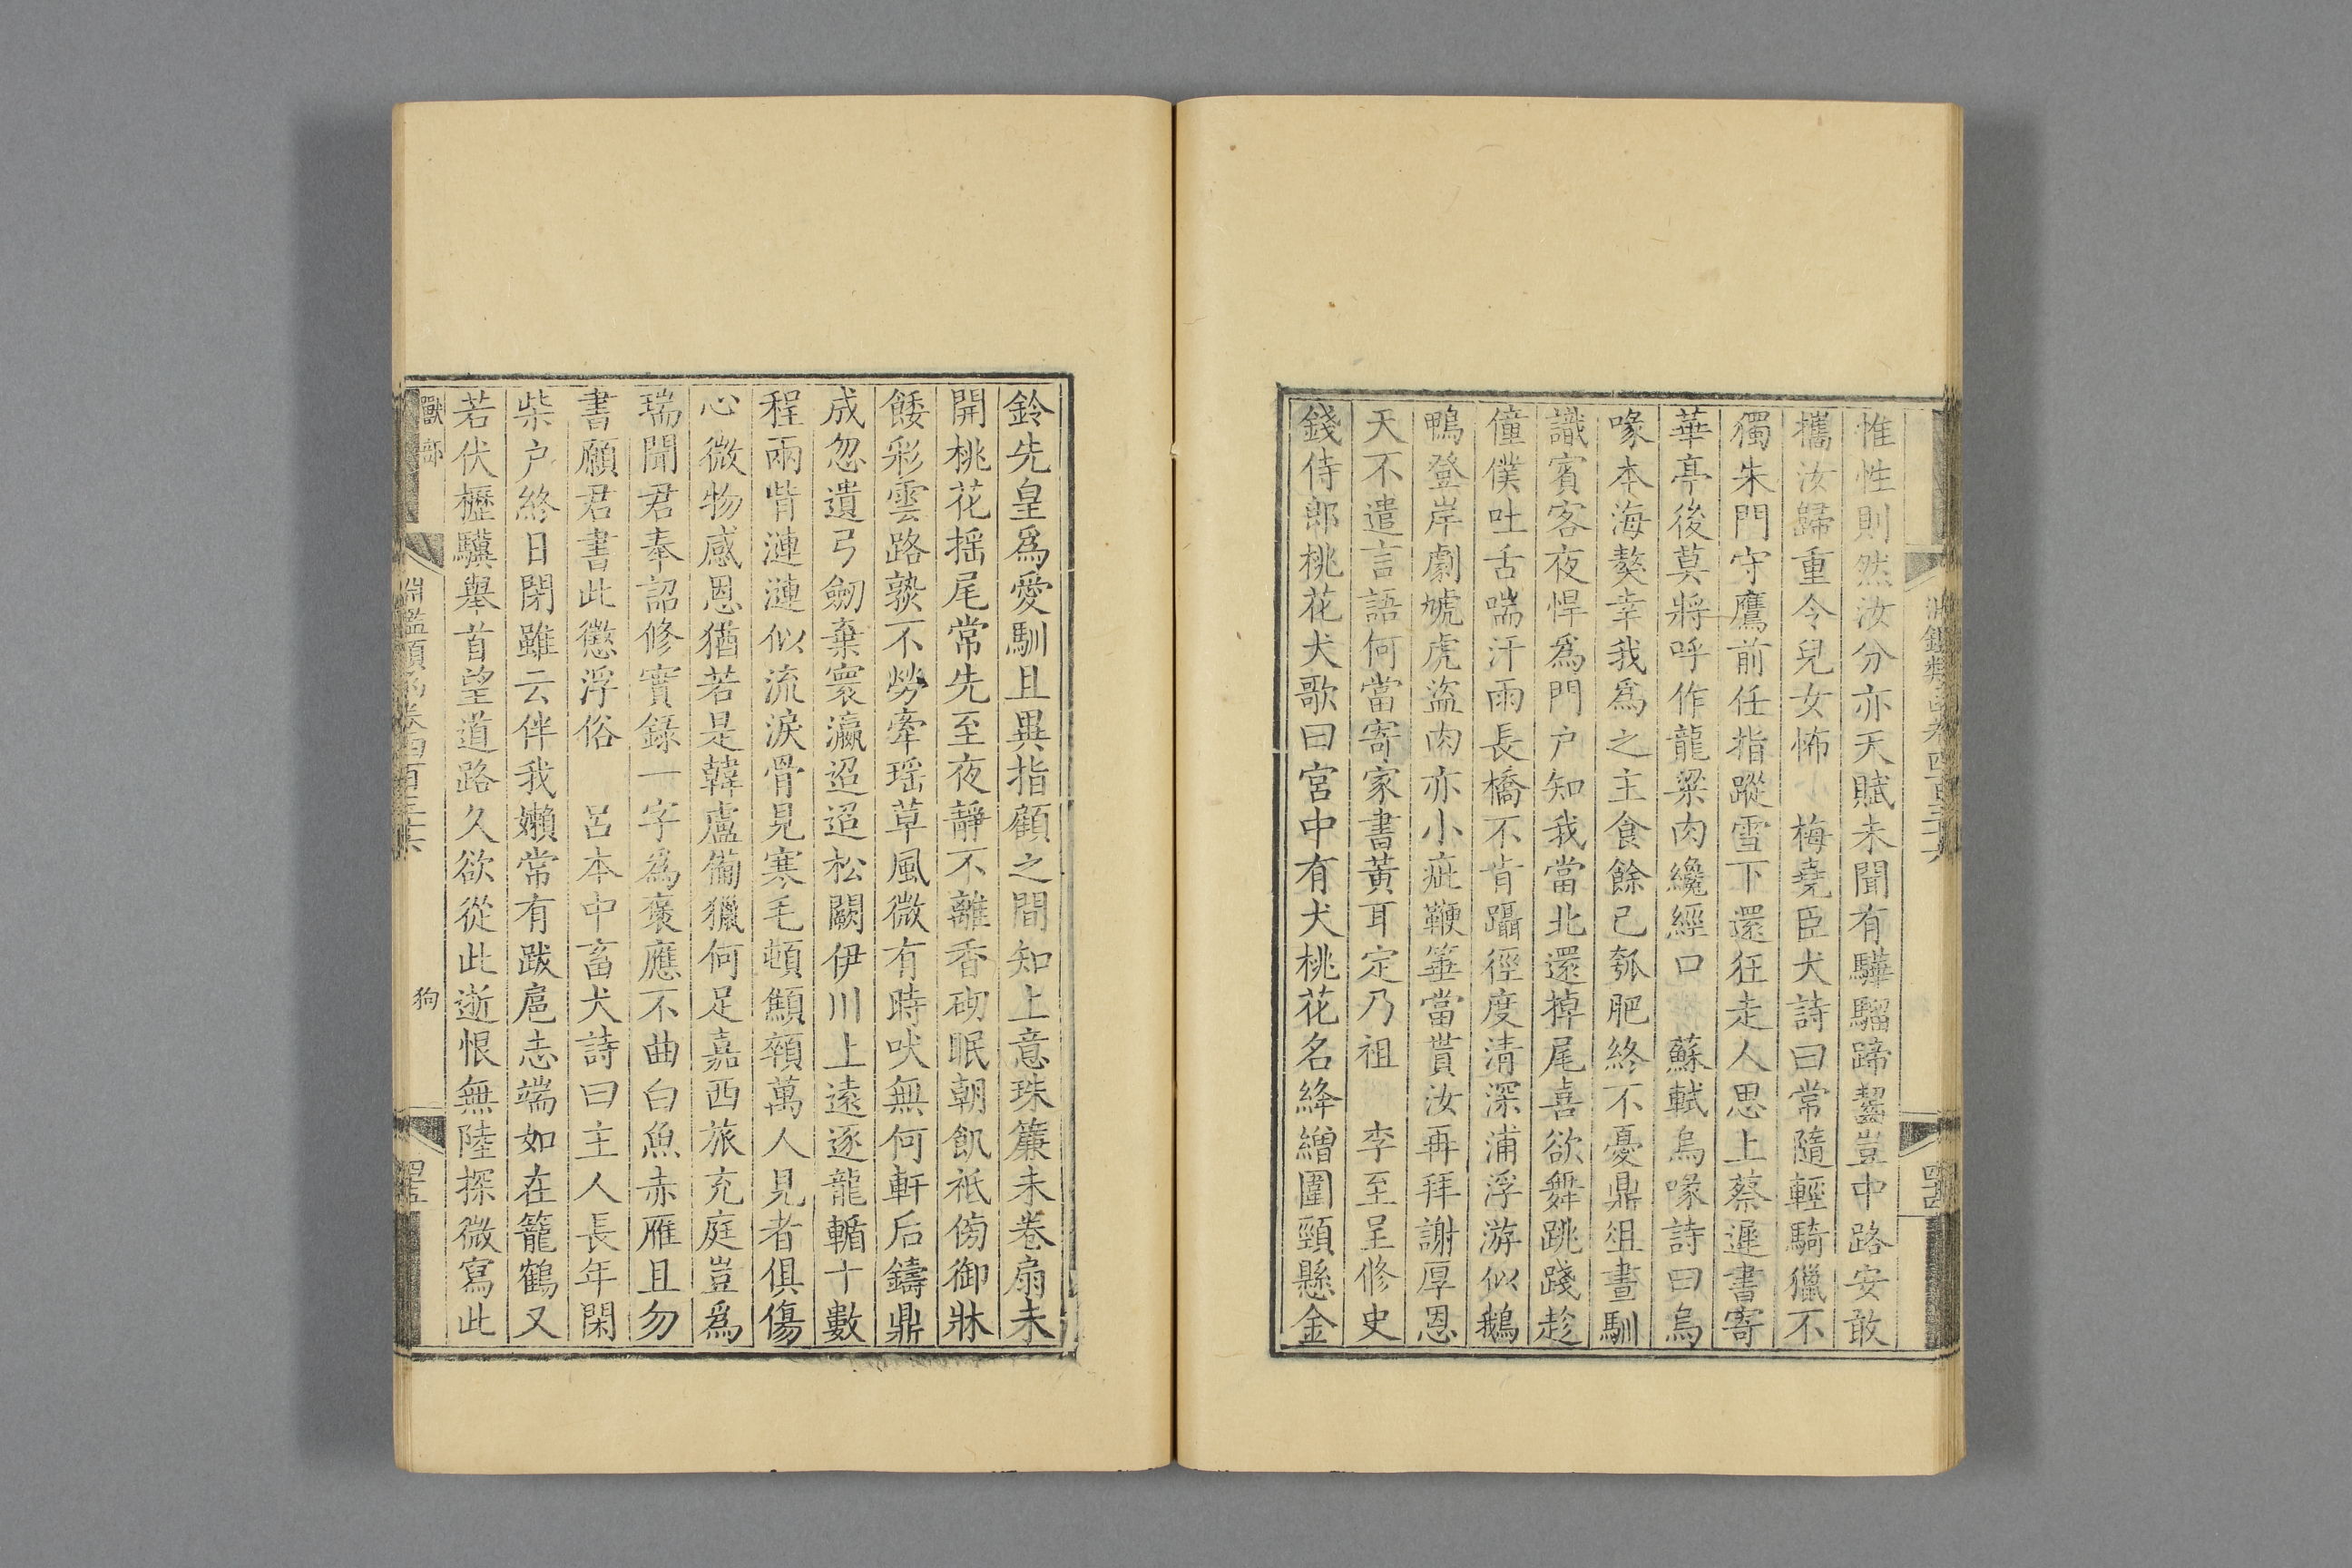 惟性則然汝分亦天賦未聞有驊騮蹄齧豈中路安敢
攜汝歸重令兒女怖 梅堯臣犬詩曰常隨輕騎獵不
獨朱門守鷹前任指蹤雪下還狂走人思上蔡遲書寄
華亭後莫將呼作龍粱肉纔經口 蘇軾烏喙詩曰烏
喙本海獒幸我爲之主食餘已瓠肥終不憂鼎俎晝馴
識賓客夜悍爲門户知我當北還掉尾喜欲舞跳踐趁
僮僕吐舌喘汗雨長橋不肯躡徑度清深浦浮游似鵝
鴨登岸劇虓虎盜肉亦小疵鞭箠當貰汝再拜謝厚恩
天不遣言語何當寄家書黃耳定乃祖 李至呈修史
錢侍郎桃花犬歌曰宮中有犬桃花名絳繒圍頸懸金
鈴先皇爲愛馴且異指顧之間知上意珠簾未卷扇未
開桃花摇尾常先至夜靜不離香砌眠朝飢祗傍御牀
餧彩雲路熟不勞牽瑶草風微有時吠無何軒后鑄鼎
成忽遺弓劒棄寰瀛迢迢松闕伊川上遠逐龍輴十數
程兩眥漣漣似流淚骨見寒毛頓顦顇萬人見者俱傷
心微物感恩猶若是韓盧備獵何足嘉西旅充庭豈爲
瑞聞君奉詔修實錄一字爲褒應不曲白魚赤雁且勿
書願君書此懲浮俗 呂本中畜犬詩曰主人長年閑
柴户終日閉雖云伴我嬾常有跋扈志端如在籠鶴又
若伏櫪驥舉首望道路久欲從此逝恨無陸探微寫此
獸部
狗